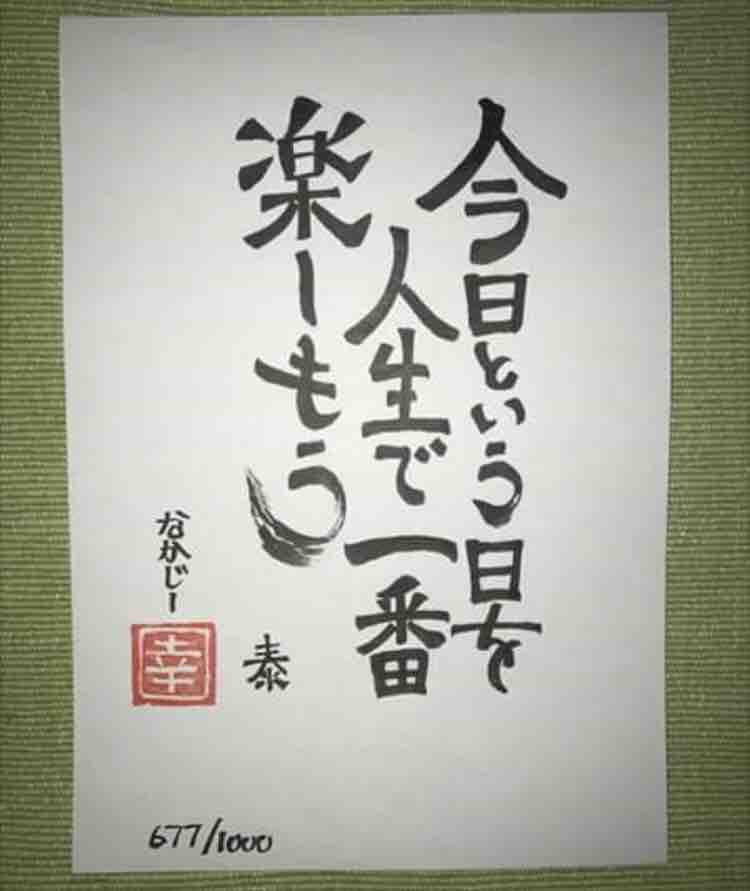 今日という日を
人生で一番
楽しもう
泰
なかじー
幸
677/1000